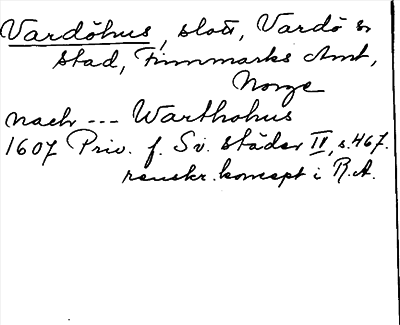 Vardöhus, slott, Vardö
stad, Finnmarks Amt,
Norge
nach --- Warthohus
1607 Priv. f. Sv. städer IV, s. 467.
renskr. koncept i R.A.